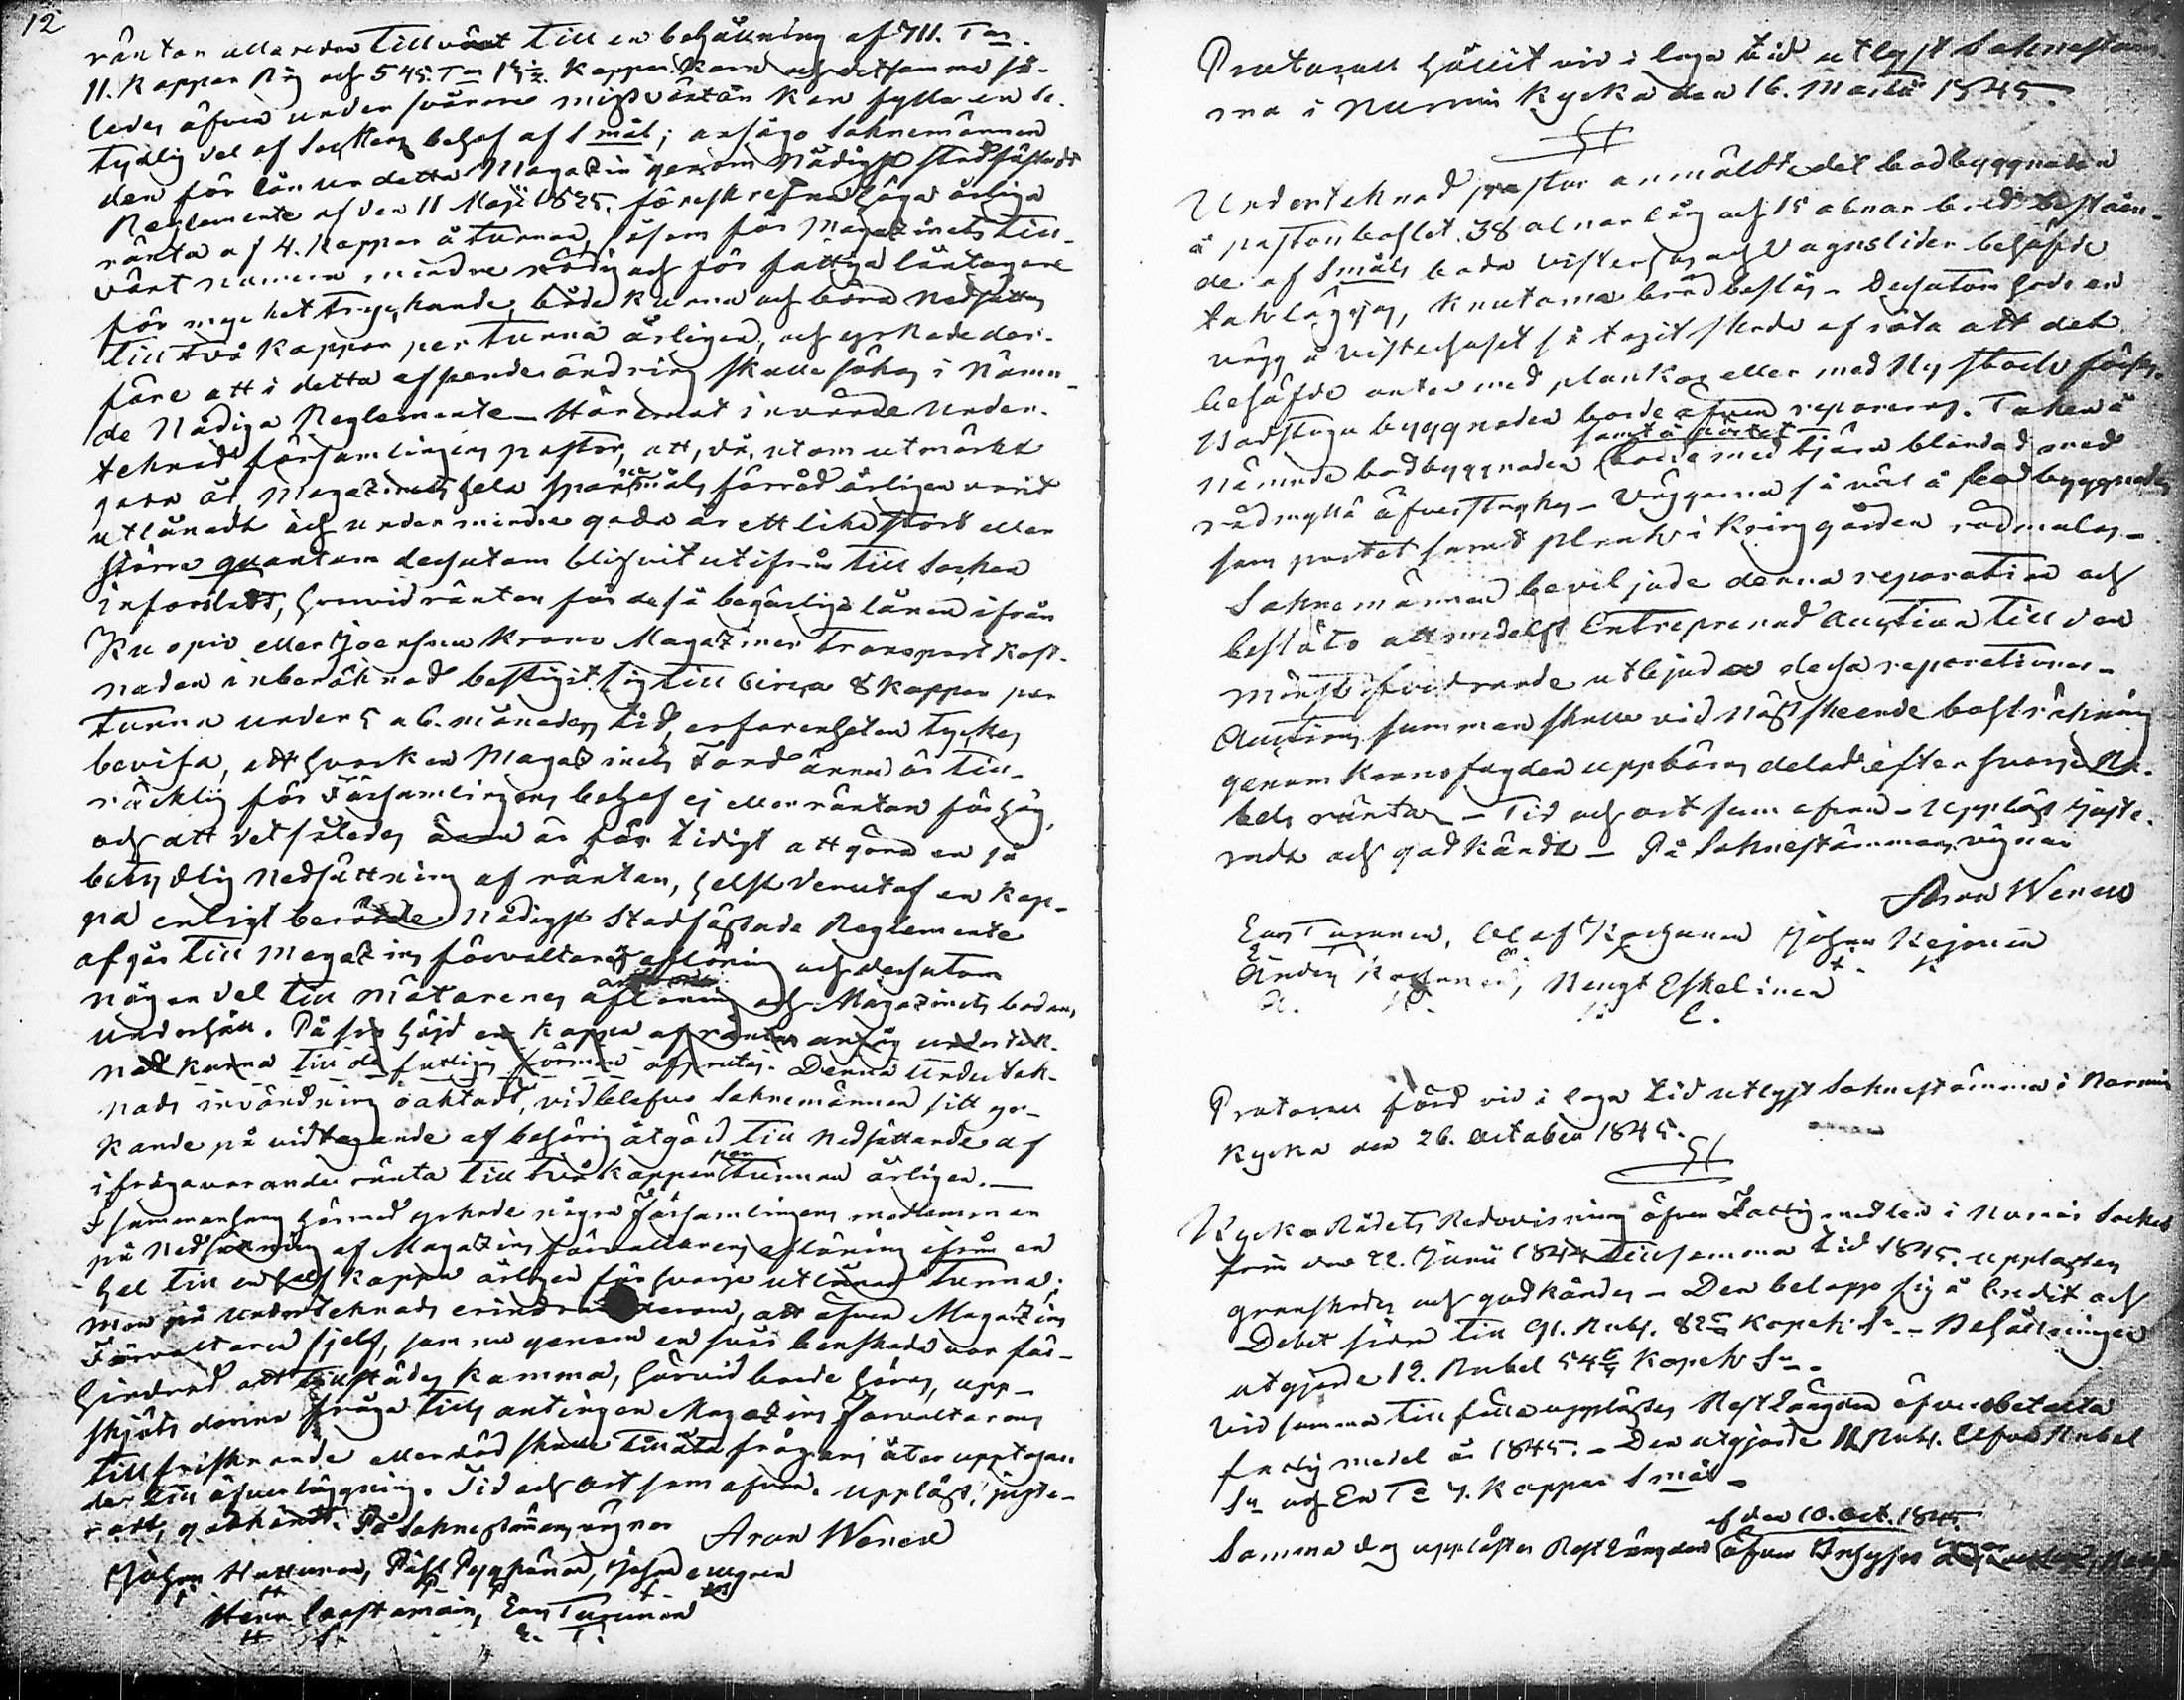 12
räntan allaredan tillvuxit till en behållning af 711. T:or
11. Kappar Råg och 545. T:or 15½ Kappar Korn och detsamma så-
ledes äfven under svårare missväxtår kan fylla en be-
tydlig del af Socknens behof af Spmål; ansågo Sockne männen
den för lån ur detta Magazin genom Nådigst stadfästadt
Reglemente af den 11 Maji 1825. föreskrefna höga årliga
ränta af 4. Kappar å tunnan, såsom för Magazinets till-
växt numera mindre nödig och för fattiga låntagare
för mycket tryckande, både kunna och böra nedsättas
till två Kappar per tunna årligen, och yrkade der-
före att i detta afseende ändring skulle sökas i Nämn-
de Nådiga Reglemente – Häremot invände Under-
teknad församlingens pastor, att, då, utom utmärkt
goda år Magazinets hela spanmåls förråd årligen varit
utlånadt och under mindre goda år ett lika stort eller
större quantum dessutom blifvit utifrån till Socken
införskrifvet, hvarvid räntan för desså begärliga lånen ifrån
Kuopio eller Joensuu Krono Magaziner transport kost-
naden inberäknad bestigit sig till circa 8 Kappar per
tunna under 5 a 6. månaders tid, erfarenheten tyckes
bevisa, att hvarken Magazinets Fond ännu är till-
räcklig för Församlingens behof ej eller räntan för hög,
och att det således ännu är för tidigt att göra en så
betydlig nedsättning af räntan, helst derutaf en kap-
pa enligt berörde Nådigst Stadfästade Reglemente
afgår till Magazins förvaltarens aflöning och dessutom
någon del till mätarenes aflöning och Magazinets bodars
underhåll. På sin höjd en kappa af räntan ansåg undertek-
nad kunna till de fattiges förmån afprutas. Denna Undertek-
nads invändning oaktadt, vidblefvo Sockne männen sitt yr-
kande på vidtagande af behörig åtgärd till nedsättande af
ifrågavarande ränta till två kappar per tunnan årligen. —
I sammanhang härmed yrkade några Församlingens medlemmar
på nedsättning af Magazins förvaltarens aflöning ifrån en
hel till en half kappa årligen för hvarje utlånad tunna;
men på Undertecknads erindran derom, att äfven Magazins
Förvaltaren sjelf, som nu genom en svår benskada var för-
hindrad att tillstädes komma, härvid borde höras, upp-
skjöts denna fråga tills antingen Magazins förvaltarens
tillfrisknande eller död skulle tillåta frågans åter upptagan-
de till öfverläggning. Tid och ort som ofvan. uppläst, juste-
radt, godkändt. På Socknestämmans vägnar
Aron Wenell
Johan Hattunen, Påhl Pyykönen, Johan
Henr Laastamain, Erns Turunen
H L. E. T.

Protocoll hållit vid i laga tid utlyst Sockne stäm-
ma i Nurmis Kyrka den 16. Martii 1845.
§
Underteknad pastor anmälte det bodbyggnaden
å pastorsbohlet. 38 alnar lång och 15 alnar bred beståen-
de af Spmåls bodar Visterhus och Vagnslider behöfde
takläggas, knutarna brädbeslås – Dessutom hade en
vägg å Visterhuset så tagit skada af röta att det
behöfde antes med plankor eller med Ny stock förses.
Badstugu byggnaden borde äfven reparerars. Taken å
nämnde bodbyggnaden samt å portet borde med tjära blandad med
rödmylla öfverstrykas – Väggarna så väl å bodbyggnaden
som portet samt plank i kring gården rödmålas –
Sockne männen beviljade denna reparation och
beslöto att medelst Entreprenad Auction till den
minst fordrande utbjuda dessa reparationer –
Auctions summan skulle vid näst skeende bohlräkning
genom Kronofogden uppbäras delad efter hvarje Ru-
bels ränta – Tid och ort som ofvan – Uppläst juste-
radt och godkändt – På Sockne stämmans vägnar
Aron Wenell
Erns Turunen, Olaf Korhonen Johan Kejonen
Anders Korhonen, Bengt Eskelinen
A. K. B. E.

Protocoll förd vid i laga tid utlyst Sockne stämma i Nurmis
Kyrka den 26. October 1845.
§
Kyrko Rådets Redovisning öfver Fattig medlen i Nurmis Socken
från den 22. Junii 1844 till samma tid 1845. upplästes
granskades och godkändes – Den belopp sig å Credit och
Debet sidan till 91. Rubl. 82 Kopek S:r – Behållningen
utgjorde 12. Rubel 54 Kopek S:r.
Vid samma tillfälle upplästes Restlängden öfver obetalta
fattig medel år 1845. – Den utgjorde 11 Rubl. Elfva Rubel
S:r och En T:a 7. Kappar Spmål –
Samma dag upplästes Restlängden af den 10. Oct. 1845. öfver